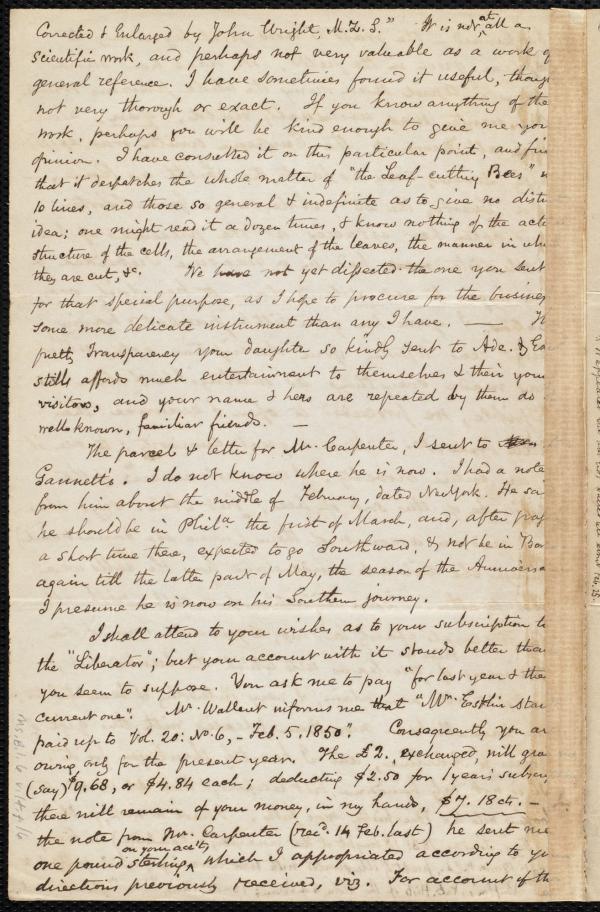 Corrected & Enlarged by John Wright, M.Z.S." It is not at all a
scientific work, and perhaps not very valuable as a work of
general reference. I have sometimes found it useful, thoug
not very thorough or exact. If you know anything of the
work, perhaps you will be kind enough to give me you
opinion. I have consulted it on this particular point, and fin
that it despatches the whole matter of "the Leaf-cutting Bees"
10 lines, and those so general & indefinite as to give no disti
idea; one might read it a dozen times, & know nothing of the act
structure of the cells, the arrangement of the leaves, the manner in wh
they are cut, &c. We have not yet dissected the one you sent
for that special purpose, as I hope to procure for the busines
some more delicate instrument than any I have. —
pretty Transparency your daughter so kindly sent to Ade. &
still affords much entertainment to themselves & their you
visitors, and your name & hers are repeated by them as
well known, familiar friends. —
The parcel & letter for Mr. Carpenter, I sent to
Gannett's. I do not know where he is now. I had a note
from him about the middle of February, dated New York. He sa
he should be in Phila. the first of March, and, after
a short time there, expected to go Southward, & not be in Bos
again till the latter part of May, the season of the Anniversa
I presume he is now on his Southern journey.
I shall attend to your wishes as to your subscription to
the "Liberator"; but your account with it stands better than
you seem to suppose. You ask me to pay "for last year & the
current one". Mr. Wallcut informs me that "Mr. Estlin stan
paid up to Vol. 20: No. 6, – Feb. 5. 1850". Consequently you ar
owing only for the present year. The £2. exchanged, will
(say) $9.68, or $4.84 each; deducting $2.50 for 1 year's subscri
there will remain of your money, in my hands, $7.18 cts. –
the note from Mr. Carpenter (rec'd. 14 Feb. last) he sent me
one pound sterling, on your acct., which I appropriated according to yo
directions previously received, viz. For account of th